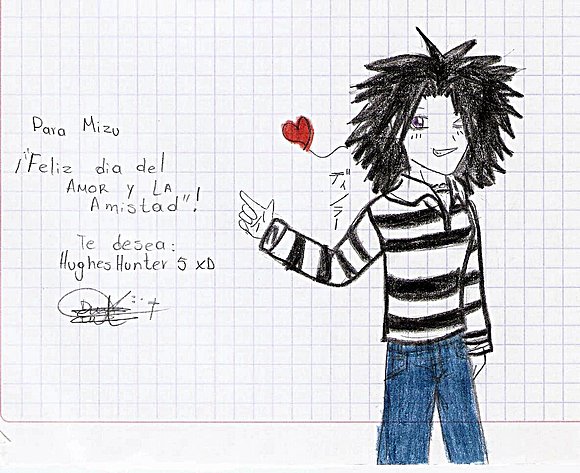 Para Mizu
¡"Feliz dia del
AMOR Y LA
Amistad"!
Te desea:
HughesHunter 5 xD